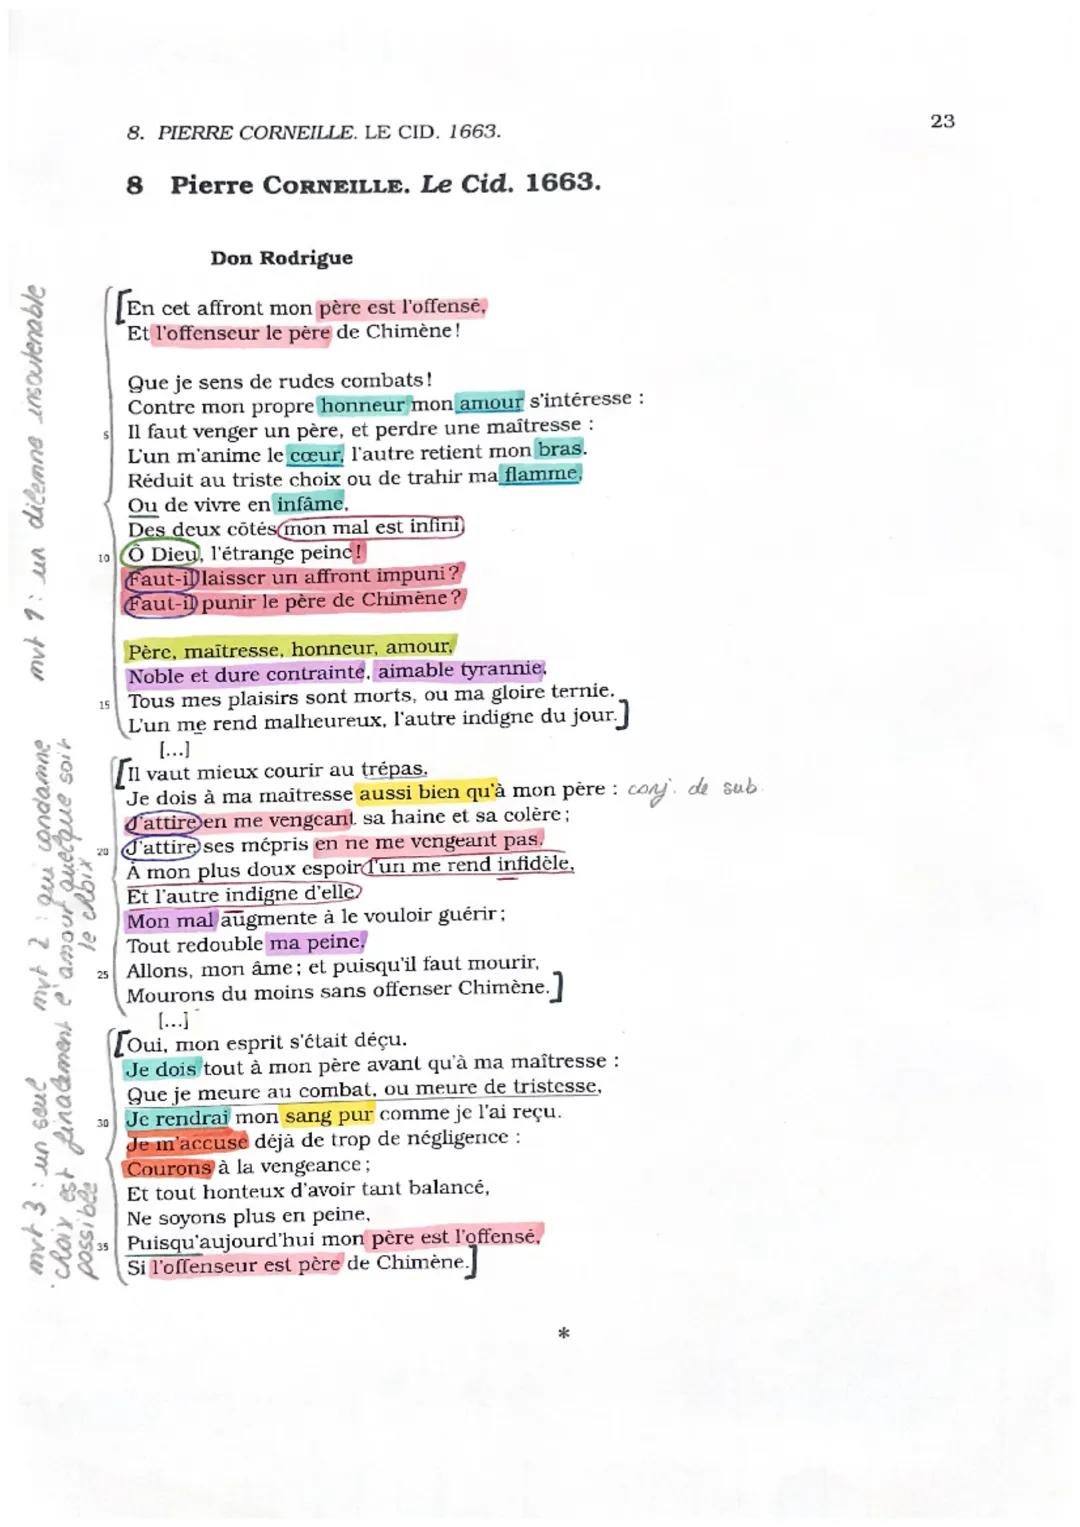 8. PIERRE CORNEILLE. LE CID. 1663.
23
8 Pierre CORNEILLE. Le Cid. 1663.
Don Rodrigue
En cet affront mon père est l'offensé,
Et l'offenseur le père de Chimène !
Que je sens de rudes combats !
Contre mon propre honneur mon amour s'intéresse :
5 Il faut venger un père, et perdre une maîtresse :
L'un m'anime le cœur, l'autre retient mon bras.
Réduit au triste choix ou de trahir ma flamme,
Ou de vivre en infâme,
Des deux côtés mon mal est infini.
10 Ô Dieu, l'étrange peine !
Faut-il laisser un affront impuni ?
Faut-il punir le père de Chimène ?
Père, maîtresse, honneur, amour,
Noble et dure contrainte, aimable tyrannie,
15 Tous mes plaisirs sont morts, ou ma gloire ternie.
L'un me rend malheureux, l'autre indigne du jour.
[...]
Il vaut mieux courir au trépas.
Je dois à ma maîtresse aussi bien qu'à mon père : conj. de sub.
J'attire en me vengeant sa haine et sa colère ;
20 J'attire ses mépris en ne me vengeant pas.
À mon plus doux espoir l'un me rend infidèle,
Et l'autre indigne d'elle.
Mon mal augmente à le vouloir guérir ;
Tout redouble ma peine.
25 Allons, mon âme ; et puisqu'il faut mourir,
Mourons du moins sans offenser Chimène.
[...]
Oui, mon esprit s'était déçu.
Je dois tout à mon père avant qu'à ma maîtresse :
Que je meure au combat, ou meure de tristesse,
30 Je rendrai mon sang pur comme je l'ai reçu.
Je m'accuse déjà de trop de négligence :
Courons à la vengeance ;
Et tout honteux d'avoir tant balancé,
Ne soyons plus en peine,
35 Puisqu'aujourd'hui mon père est l'offensé,
Si l'offenseur est père de Chimène.
*
mvt 1 : un dilemne insoutenable
mvt 2 : qui condamne
l'amour quelque soit
le choix
mvt 3 : un seul
choix est finalement
possible